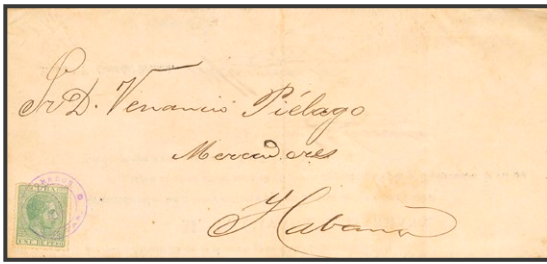 Sr D. Venancio Piélago
Mercaderes
Habana
CUBA